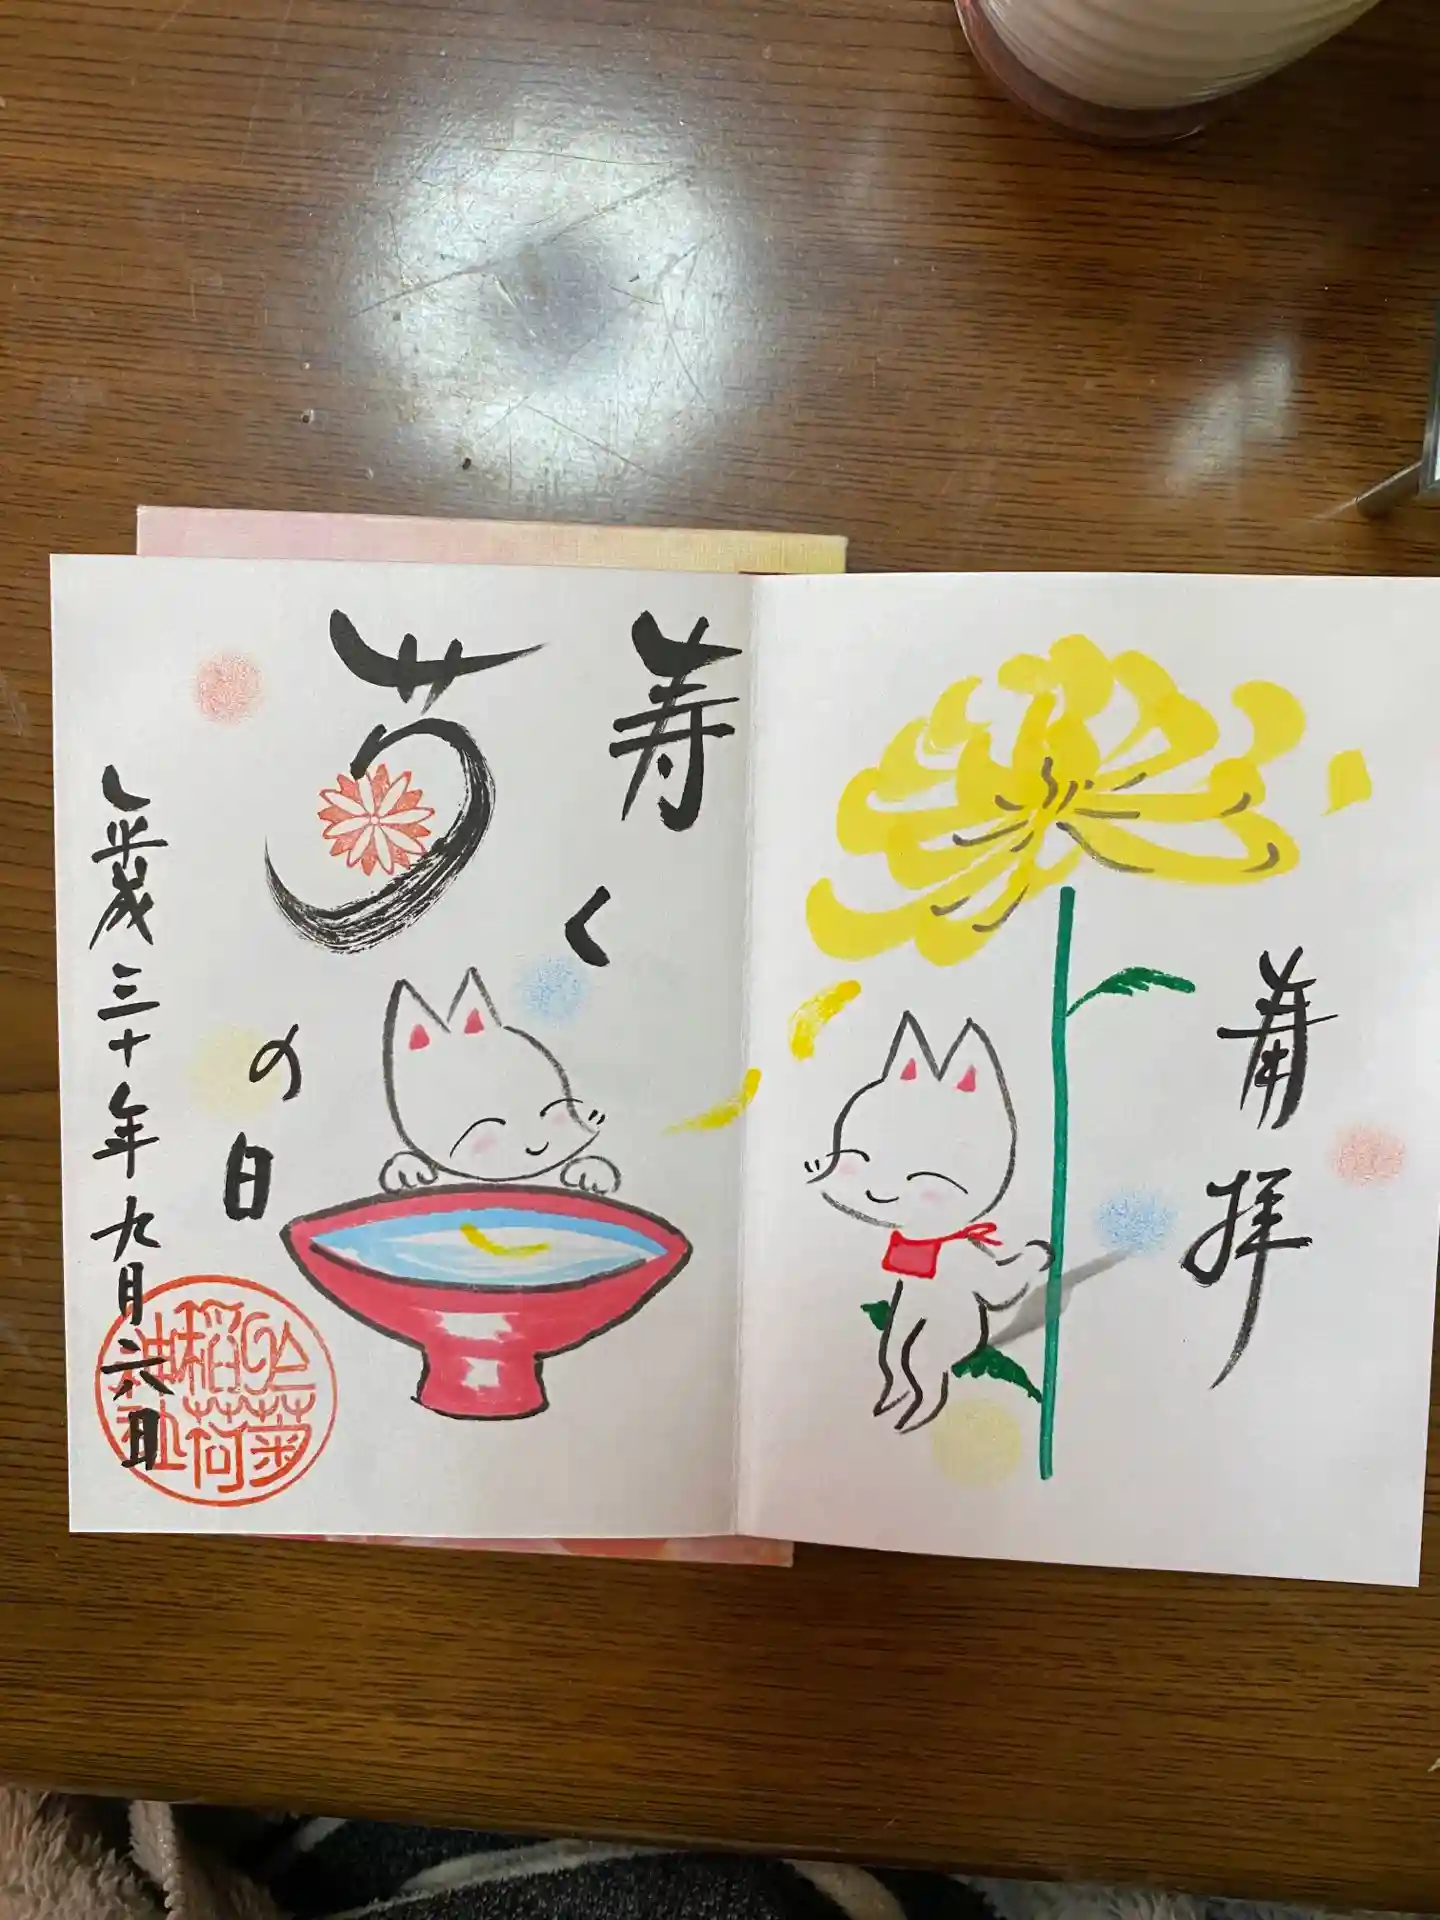 奉拝
寿く
菊
の日
平成三十年九月六日
於菊
稲荷
神社